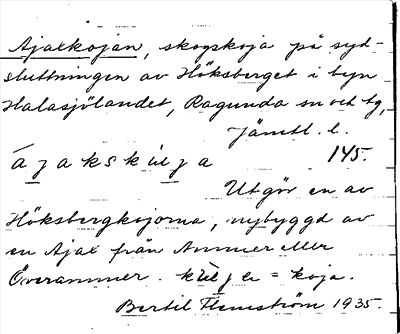 Ajaxkojan, skogskoja på syd-
sluttningen av Höksberget i byn
Halasjölandet, Ragunda sn och tg,
Jämtl. l.
á j a k s k ù j a 145.
Utgör en av
Höksbergkojorna, nybyggd av
en Ajax från Ammer eller
Överammer. = koja.
Bertil Flemström 1935.